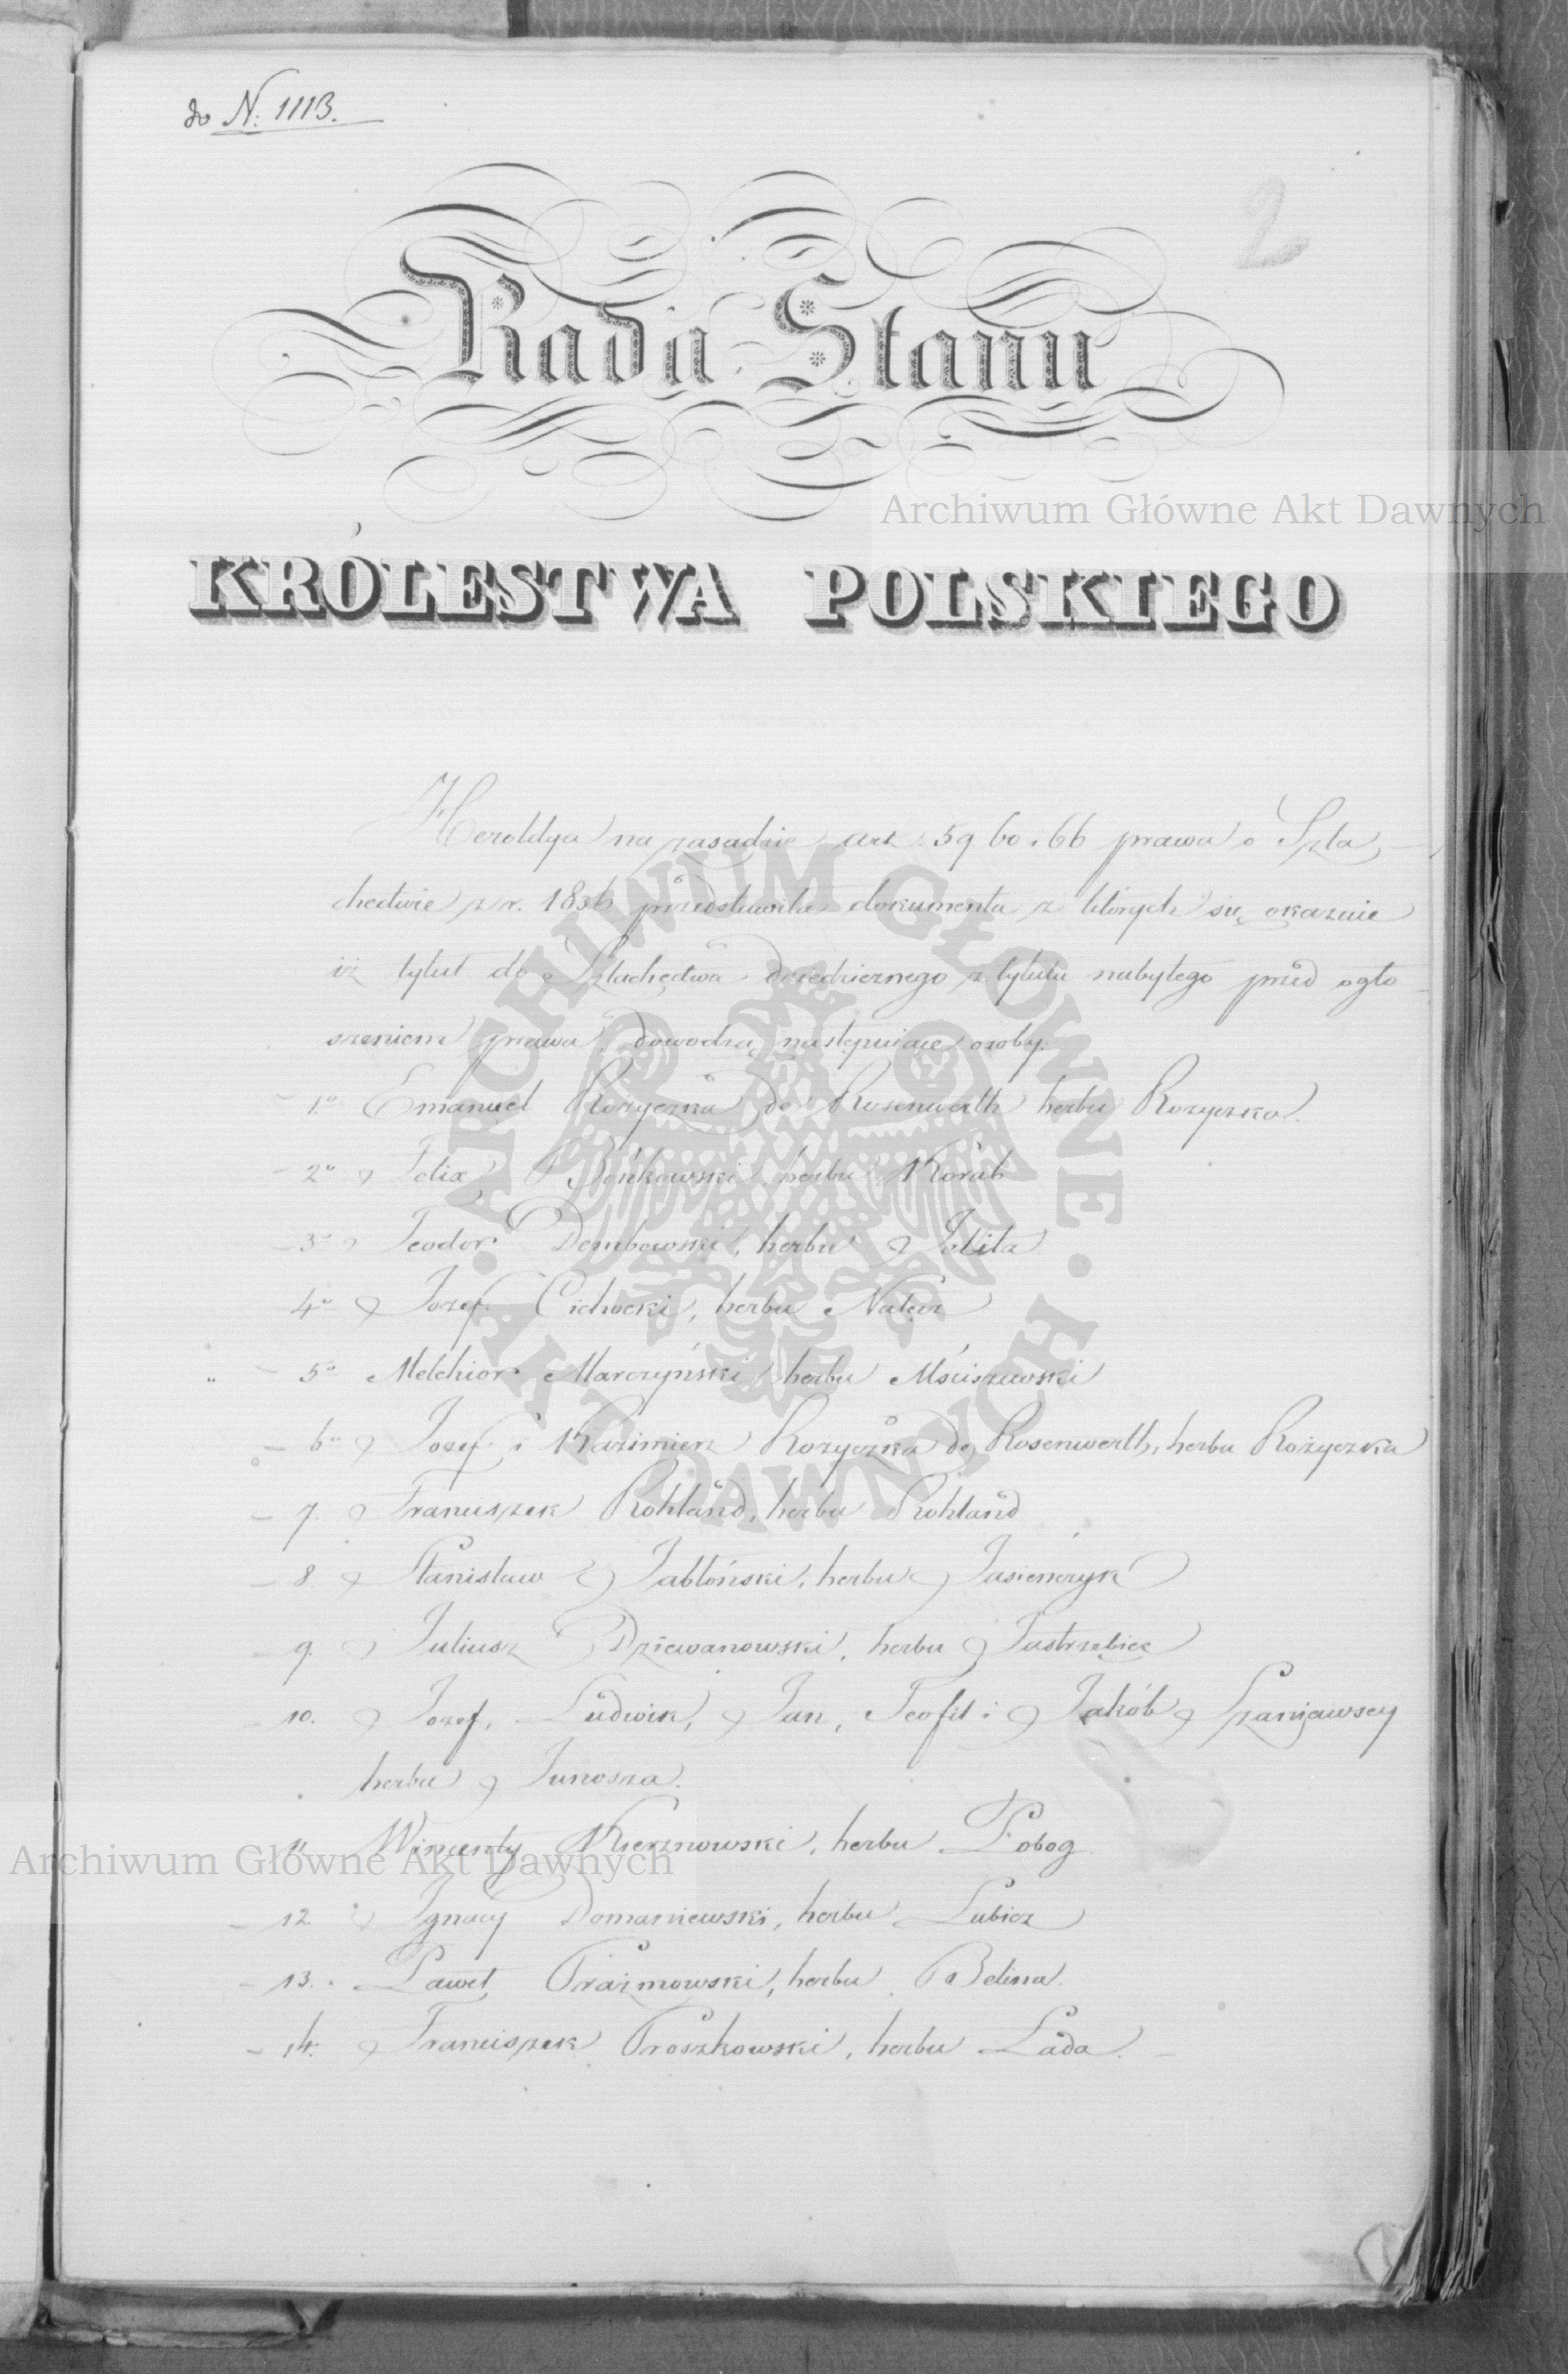 do N. 1113.
2
Rada Stanu
KRÓLESTWA POLSKIEGO
Archiwum Główne Akt Dawnych
Heroldya na zasadzie art: 59 60 i 66 prawa o Szla
chectwie z r. 1836 przedstawiła dokumenta z których się okazuie
iż tytuł do Szlachectwa dziedzicznego z tytułu nabytego przed ogło
szeniem prawa, dowodzą następuiące osoby:
1o Emanuel Rożyczka de Rosenwerth herbu Rożyczka.
2o Felix Bońkowski, herbu Korab
3o Teodor Dembowski, herbu Jelita
4o Józef Cichocki, herbu Nałęcz
5o Melchior Marczyński herbu Mściszewski
6o Józef i Kazimierz Rożyczka de Rosenwerth, herbu Rożyczka
7. Franciszek Rohland, herbu Rohland
8 Stanisław Jabłoński, herbu Jasieńczyk
9. Juliusz Dziewanowski, herbu Jastrzębiec
10. Józef, Ludwik, Jan, Teofil i Jakób Szaniawscy
herbu Junosza.
11. Wincenty Kiersnowski, herbu Pobog
12 Ignacy Domaniewski, herbu Lubicz
13. Paweł Prażmowski, herbu Belina.
14. Franciszek Proszkowski, herbu Łada.
Archiwum Główne Akt Dawnych
ARCHIWUM GŁÓWNE · AKT DAWNYCH ·